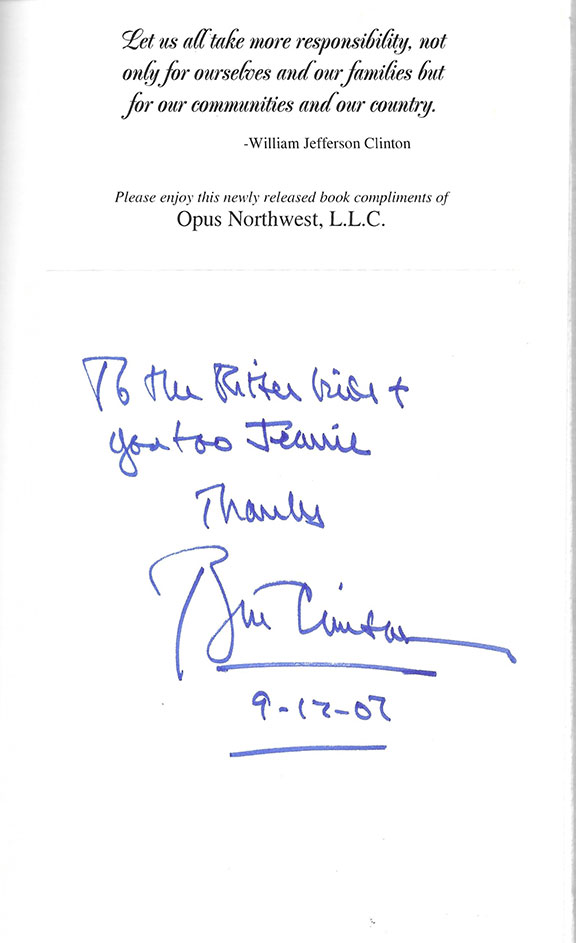 Let us all take more responsibility, not
only for ourselves and our families but
for our communities and our country.
-William Jefferson Clinton
Please enjoy this newly released book compliments of
Opus Northwest, L.L.C.
To the Ritter kids +
you too Jeannie
Thanks
Bill Clinton
9-12-07